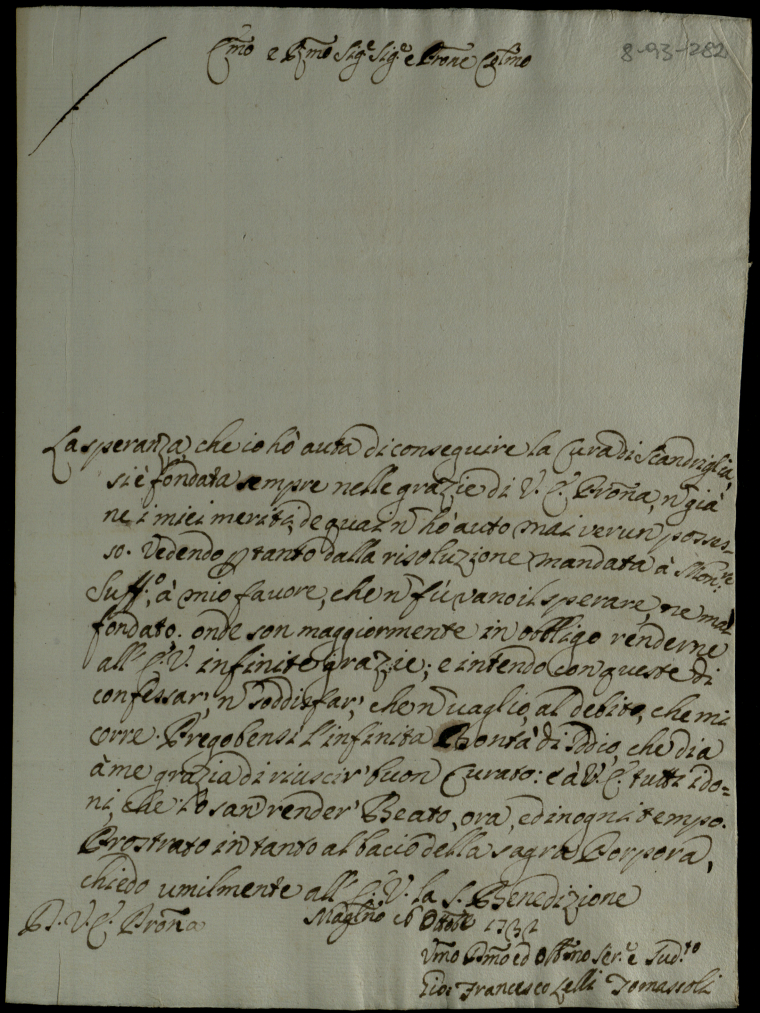 Em̃o e Rm̃o Sig.r Sig.r e Pron̄e Col̃mo
8-93-1282
La speranza, che io hò auta di conseguire la Cura di Scandriglia,
si è fondata sempre nelle grazie di V. E. Pron̄a, ñ già
ne i miei meriti, de quai ñ hò auto mai verun posses-
so. Vedendo ꝑ tanto dalla risoluzione mandata à Mon.re
Suff.o, à mio favore, che ñ fù vano il sperare, ne mal
fondato. onde son maggiormente in obbligo renderne
all' E. V. infinite grazie; e intendo con queste di
confessar', ñ soddisfar', che ñ vaglio, al debito, che mi
corre. Prego bensì l'infinita Bontà di Idio, che dia
à me grazia di riuscir' buon Curato: e à V. E. tutti i do=
ni, che lo san render' Beato, ora, ed in ogni tempo.
Prostrato in tanto al bacio della sagra Porpora,
chiedo umilmente all' E. V. la S. Benedizione
D. V. E. Pron̄a
Magl.no 16 Ottobre 1732
Vm̃o Dm̃o ed Obb̃mo Ser.e e Sud.to
Gio: Francesco Lelli Tomassoli